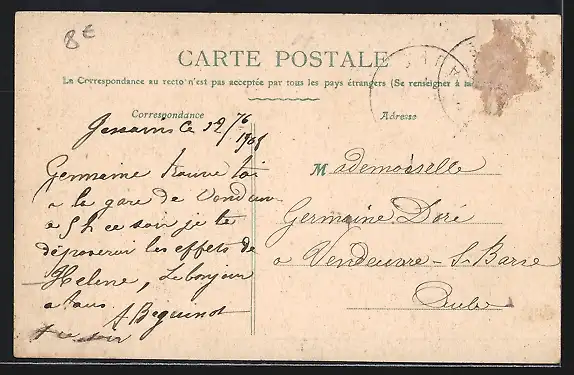 8€
CARTE POSTALE
La Correspondance au recto n'est pas acceptée par tous les pays étrangers (Se renseigner à la
Correspondance
Adresse
Jessains le
Germaine trouve toi
a la gare de Vendeuvre
a 5 h ce soir je te
déposerai les effets de
Helene, Le bonjour
a tous
A Beguinot
ce soir
Mademoiselle
Germaine Doré
a Vendeuvre - S. Barse
Aube